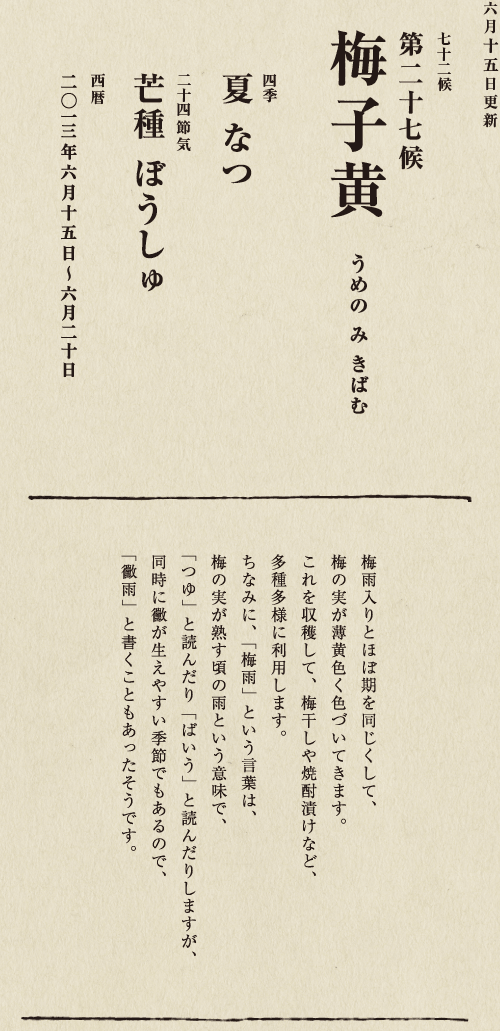 六月十五日更新
七十二候
第二十七候
梅子黄 うめの み きばむ
四季
夏 なつ
二十四節気
芒種 ぼうしゅ
西暦
二〇一三年六月十五日〜六月二十日
梅雨入りとほぼ期を同じくして、
梅の実が薄黄色く色づいてきます。
これを収穫して、梅干しや焼酎漬けなど、
多種多様に利用します。
ちなみに、「梅雨」という言葉は、
梅の実が熟す頃の雨という意味で、
「つゆ」と読んだり「ばいう」と読んだりしますが、
同時に黴が生えやすい季節でもあるので、
「黴雨」と書くこともあったそうです。